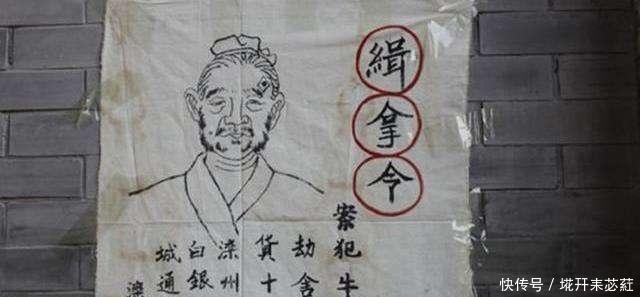 緝拿令
案犯牛
劫舍
貨十
滦州
白銀
城通
快传号／埖开耒苾莊